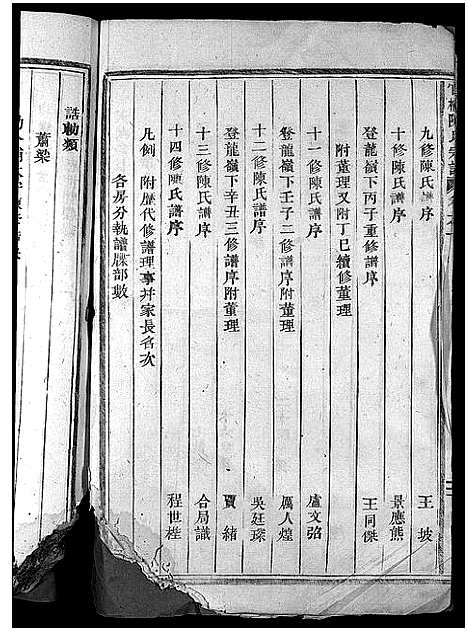 陳氏宗譜
九修陳氏譜序　王坡
十修陳氏譜序　景應熊
登龍嶺下丙子重修譜序　王同傑
附董理又附丁巳續修董理
十一修陳氏譜序　盧文弨
登龍嶺下壬子二修譜序附董理　厲人煌
十二修陳氏譜序　吳廷琛
登龍嶺下辛丑三修譜序附董理　賈緒
十三修陳氏譜序　合局識
十四修陳氏譜序　程世桂
凡例　附歷代修譜理事并家長名次
各房分執譜牒部數
誥勅類
蕭梁